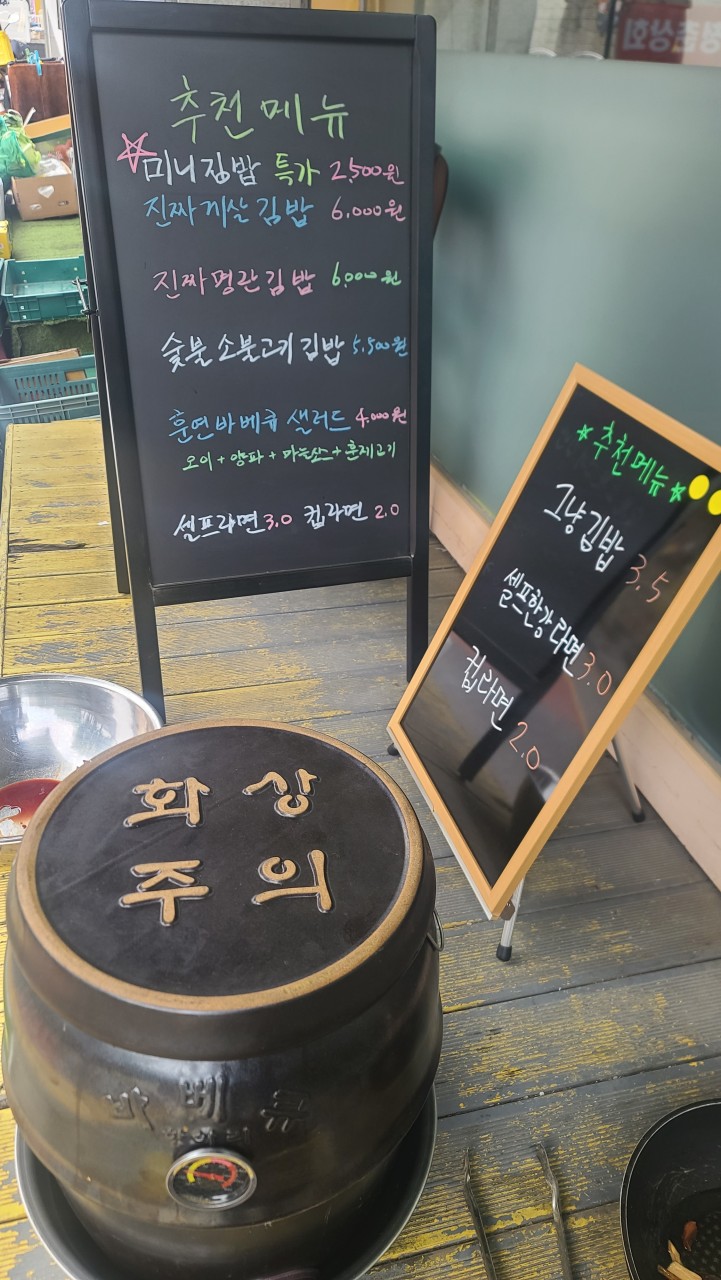 추천메뉴
미니김밥 특가 2,500원
진짜게살김밥 6,000원
진짜명란김밥 6,000원
숯불소불고기김밥 5,500원
훈연바베큐 샐러드 4,000원
오이+양파+마늘소스+훈제고기
셀프라면 3.0 컵라면 2.0
추천메뉴
그냥김밥 3.5
셀프한강라면 3.0
컵라면 2.0
화상
주의
바베큐